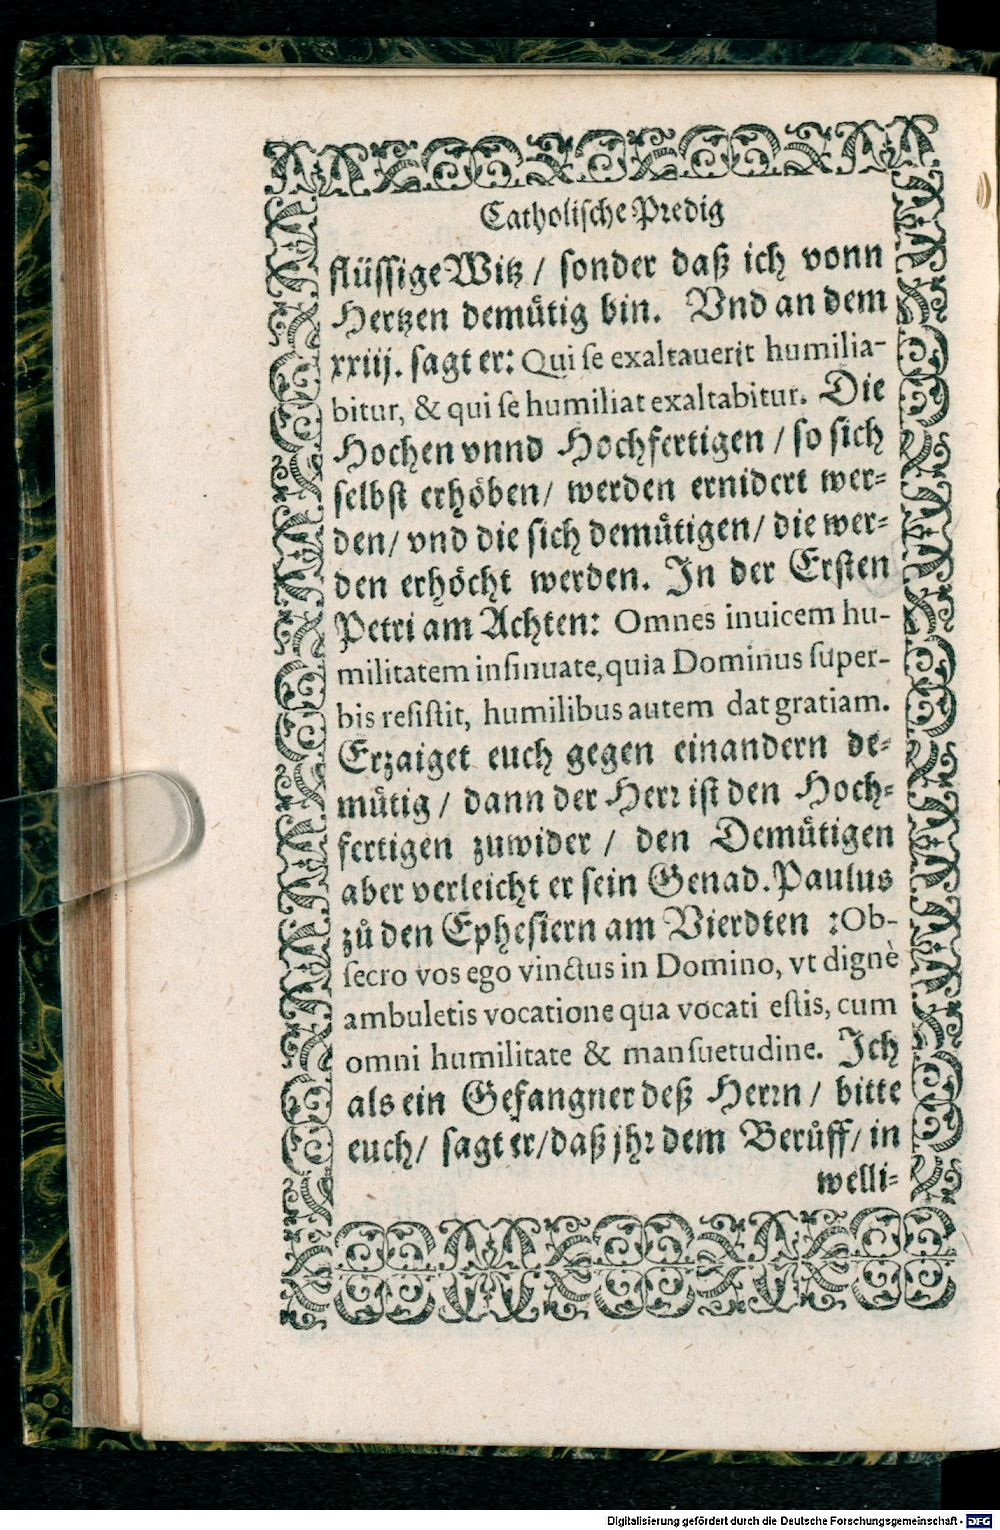 Catholische Predig
flüssige Witz / sonder daß ich vonn
Hertzen demuͤtig bin. Vnd an dem
xxiij. sagt er: Qui se exaltauerit humilia-
bitur, & qui se humiliat exaltabitur. Die
Hochen vnnd Hochfertigen / so sich
selbst erhöben / werden ernidert wer-
den / vnd die sich demuͤtigen / die wer-
den erhöcht werden. In der Ersten
Petri am Achten: Omnes inuicem hu-
militatem insinuate, quia Dominus super-
bis resistit, humilibus autem dat gratiam.
Erzaiget euch gegen einandern de-
muͤtig / dann der Herr ist den Hoch-
fertigen zuwider / den Demuͤtigen
aber verleicht er sein Genad. Paulus
zů den Ephesiern am Vierdten : Ob-
secro vos ego vinctus in Domino, vt dignè
ambuletis vocatione qua vocati estis, cum
omni humilitate & mansuetudine. Ich
als ein Gefangner deß Herrn / bitte
euch / sagt er / daß jhr dem Berůff / in
welli-
Digitalisierung gefördert durch die Deutsche Forschungsgemeinschaft - DFG